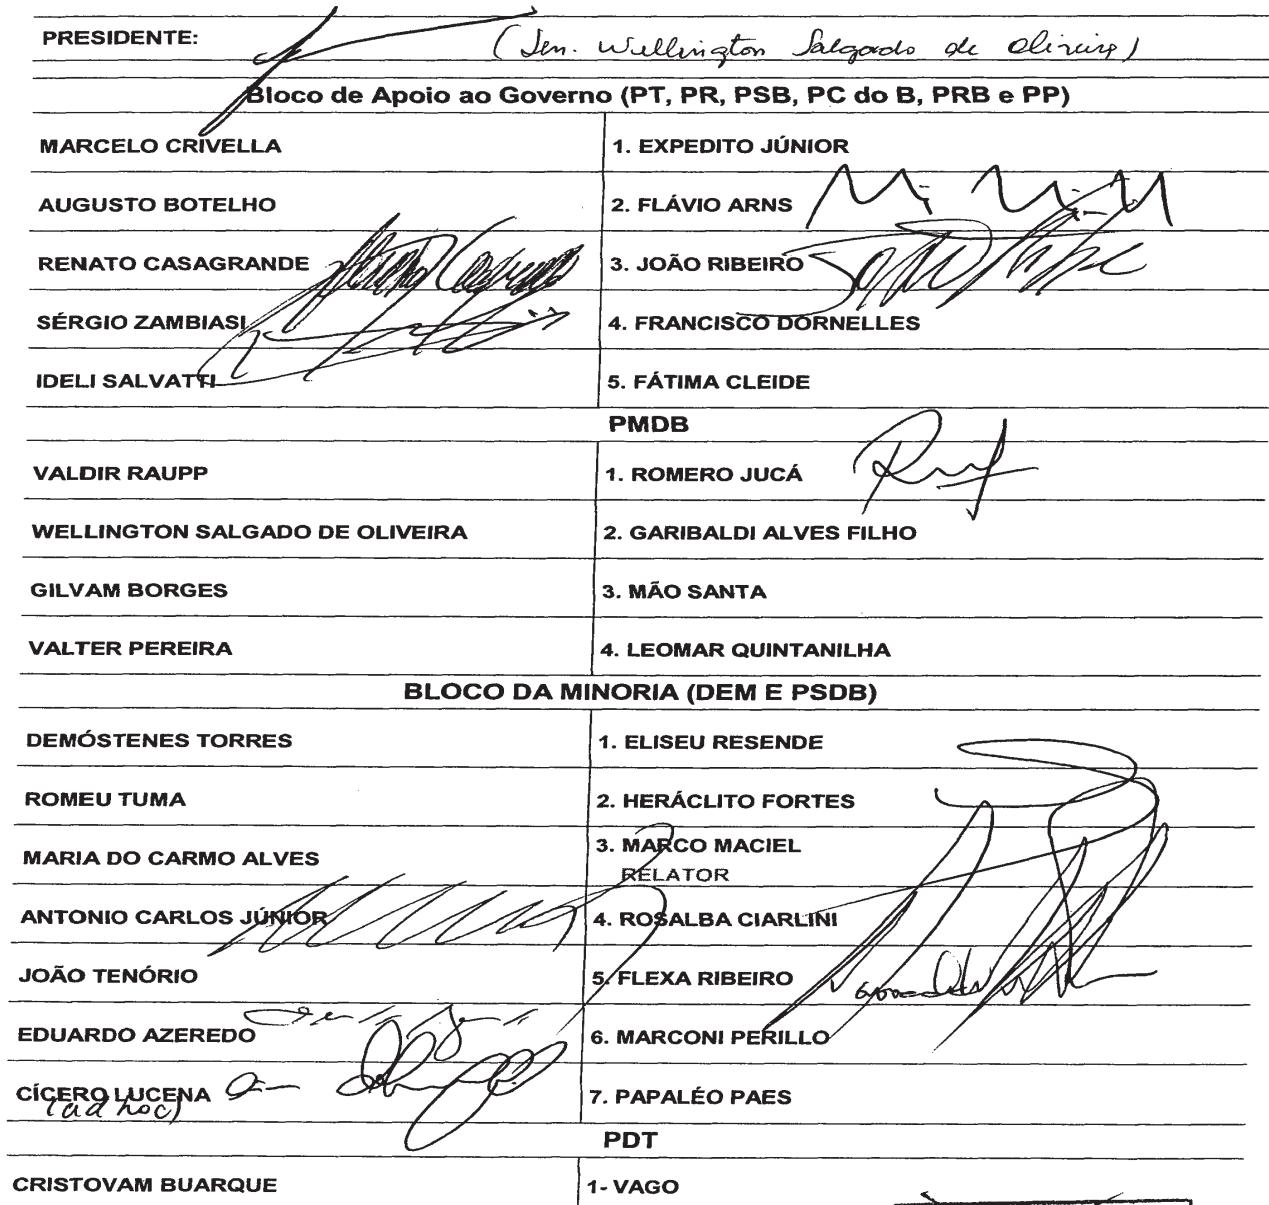 PRESIDENTE: (Sen. Wellington Salgado de Oliveira)
Bloco de Apoio ao Governo (PT, PR, PSB, PC do B, PRB e PP)
MARCELO CRIVELLA 1. EXPEDITO JÚNIOR
AUGUSTO BOTELHO 2. FLÁVIO ARNS
RENATO CASAGRANDE 3. JOÃO RIBEIRO
SÉRGIO ZAMBIASI 4. FRANCISCO DORNELLES
IDELI SALVATTI 5. FÁTIMA CLEIDE
PMDB
VALDIR RAUPP 1. ROMERO JUCÁ
WELLINGTON SALGADO DE OLIVEIRA 2. GARIBALDI ALVES FILHO
GILVAM BORGES 3. MÃO SANTA
VALTER PEREIRA 4. LEOMAR QUINTANILHA
BLOCO DA MINORIA (DEM E PSDB)
DEMÓSTENES TORRES 1. ELISEU RESENDE
ROMEU TUMA 2. HERÁCLITO FORTES
MARIA DO CARMO ALVES 3. MARCO MACIEL
RELATOR
ANTONIO CARLOS JÚNIOR 4. ROSALBA CIARLINI
JOÃO TENÓRIO 5. FLEXA RIBEIRO
EDUARDO AZEREDO 6. MARCONI PERILLO
CÍCERO LUCENA 7. PAPALÉO PAES
(ad hoc)
PDT
CRISTOVAM BUARQUE 1- VAGO